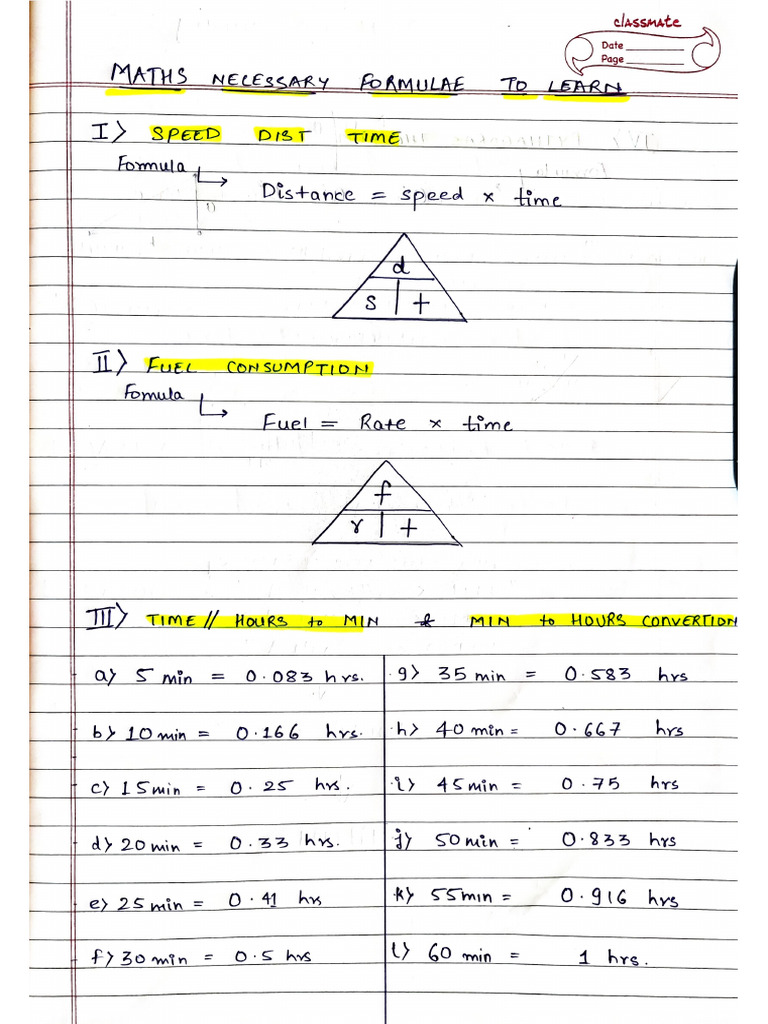 classmate
Date
Page
MATHS NECESSARY FORMULAE TO LEARN
I> SPEED DIST TIME
Formula
Distance = speed × time
d
s t
II> FUEL CONSUMPTION
Fomula
Fuel = Rate × time
f
r t
III> TIME // HOURS to MIN & MIN to HOURS CONVERTION
a> 5 min = 0.083 hrs.
b> 10 min = 0.166 hrs.
c> 15 min = 0.25 hrs.
d> 20 min = 0.33 hrs.
e> 25 min = 0.41 hrs
f> 30 min = 0.5 hrs
g> 35 min = 0.583 hrs
h> 40 min = 0.667 hrs
i> 45 min = 0.75 hrs
j> 50 min = 0.833 hrs
k> 55 min = 0.916 hrs
l> 60 min = 1 hrs.